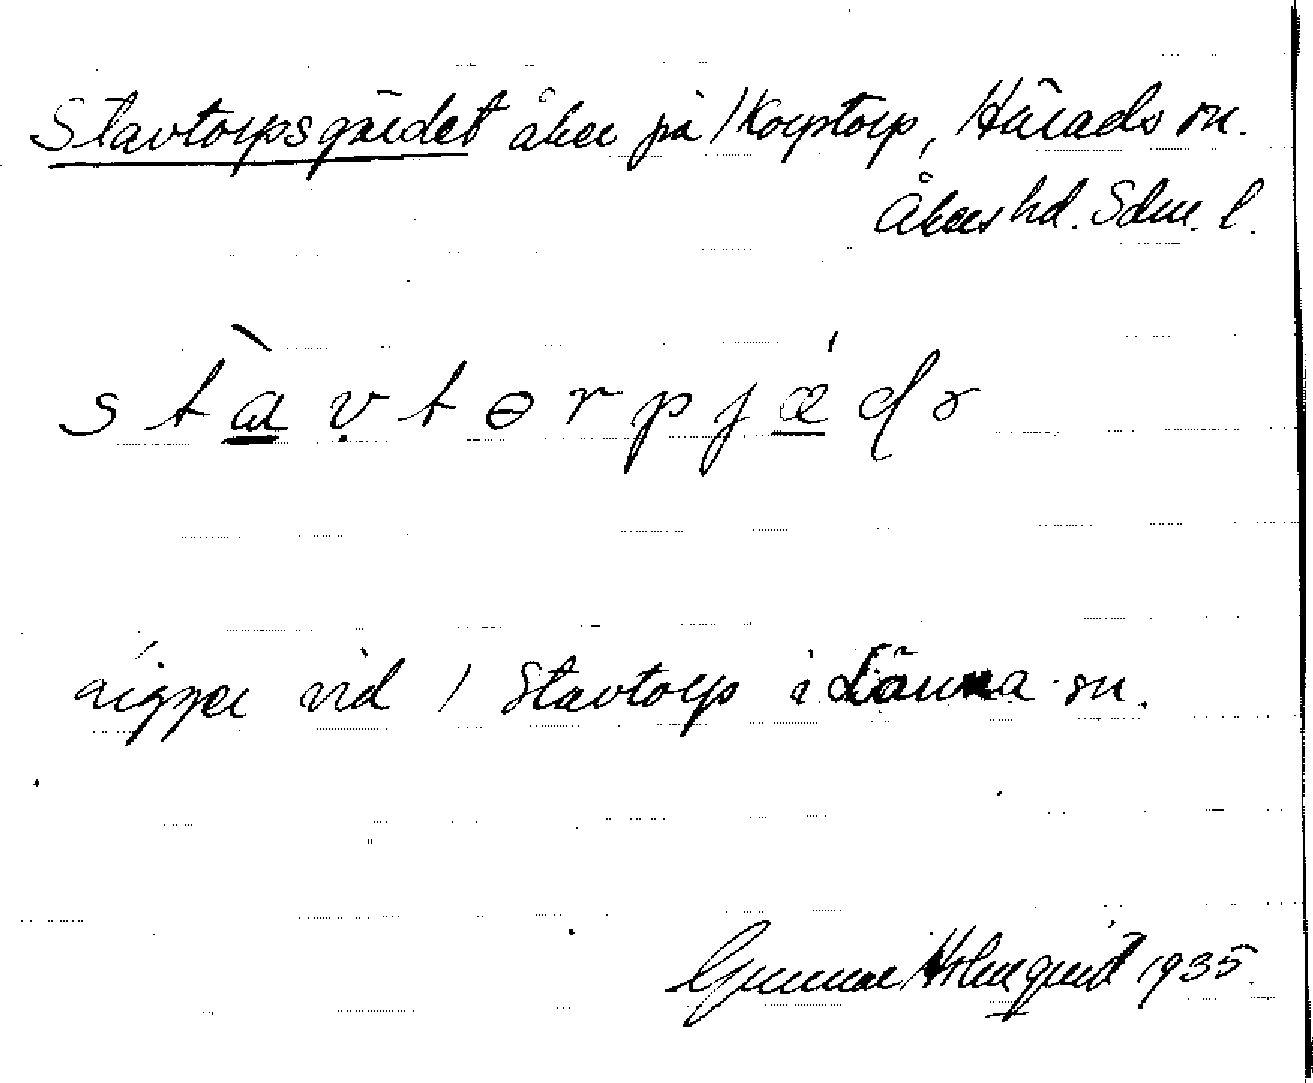 Stavtorpsgärdet åker på / Korptorp, Härads sn.
Åkers hd. Sdm. l.
stàvtɵrpjǽdə
ligger vid / Stavtorp i Länna sn.
Gunnar Holmquist 1935.